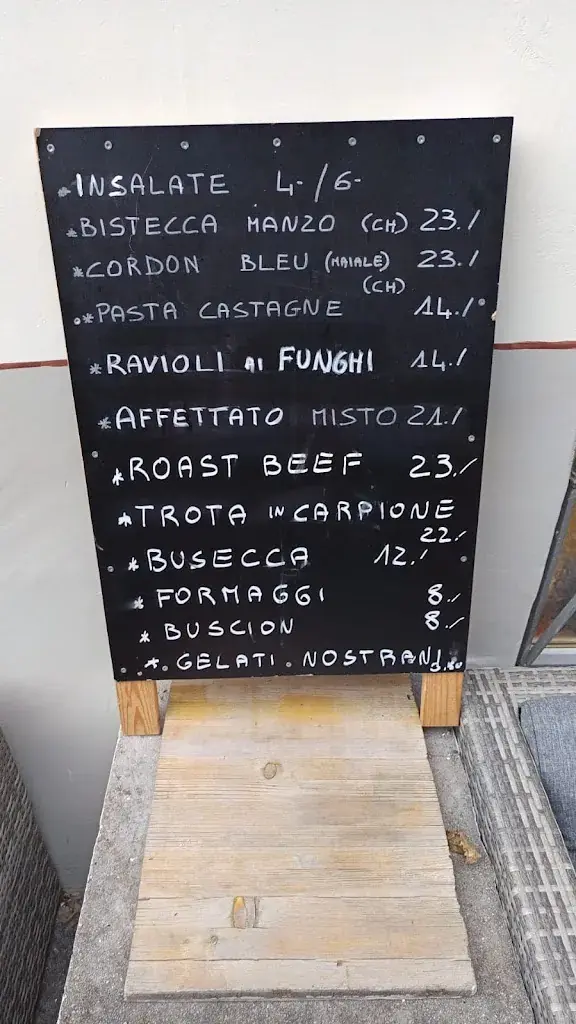 *INSALATE 4.-/6.-
*BISTECCA MANZO (CH) 23./
*CORDON BLEU (MAIALE) 23./
(CH)
*PASTA CASTAGNE 14./
*RAVIOLI AI FUNGHI 14./
*AFFETTATO MISTO 21./
*ROAST BEEF 23./
*TROTA IN CARPIONE
22./
*BUSECCA 12./
*FORMAGGI 8./
*BUSCION 8./
*.GELATI.NOSTRANI